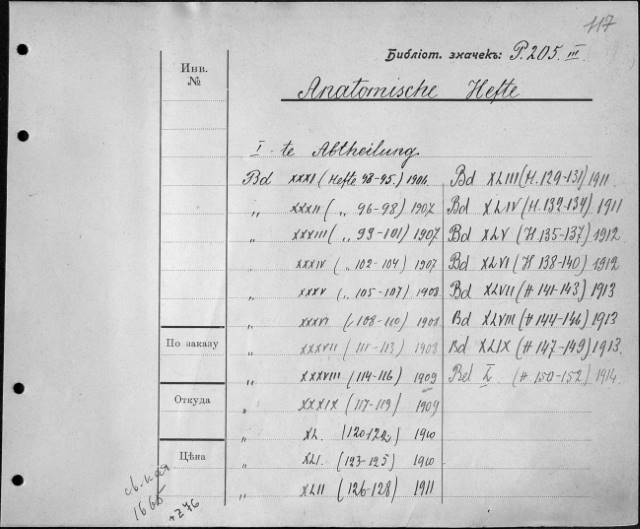 117
Библіот. значекъ: P. 205. III
Инв.
№
Anatomische Hefte
I-te Abtheilung
Bd XXXI (Hefte 98-95.) 1906.
„ XXXII ( „ 96-98) 1907
„ XXXIII ( „ 99-101) 1907
„ XXXIV ( „ 102-104) 1907
„ XXXV ( „ 105-107) 1908
„ XXXVI ( „ 108-110) 1908
„ XXXVII (111-113) 1908
„ XXXVIII (114-116) 1909
„ XXXIX (117-119) 1909
„ XL. (120-122) 1910
„ XLI. (123-125) 1910
„ XLII (126-128) 1911
Bd XLIII (H. 129-131) 1911.
Bd XLIV (H. 132-134) 1911
Bd XLV (H 135-137) 1912
Bd XLVI (H 138-140) 1912
Bd XLVII (H 141-143) 1913
Bd XLVIII (H 144-146) 1913
Bd XLIX (H 147-149) 1913.
Bd L. (H 150-152) 1914.
По заказу
Откуда
Цѣна